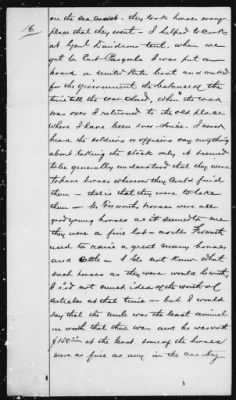 16
on the sea coast. they took horses every
place that they went - I helped to Cook
at Genl Davidsons tent. when we
got to East Pascagoula I was put on
board a United States boat and worked
for the government the balance of the
time till the war closed, when the war
was over I returned to the old place
where I have been ever since. I never
heard the soldiers or officers say anything
about taking the stock only it seemed
to be generally understood that they were
to have horses wherever they could find
them - that is that they were to take
them - Mr horses were all
good young horses as it seemed to me
they were a fine lot - Mr
used to raise a great many horses
and Cattle - I do not know what
such horses as they were would be worth,
I had not much idea of the worth of
articles at that time - but I would
say that the mule was the least animal
in worth that there was and he was worth
$150 at the least some of the horses
were as fine as any in the country